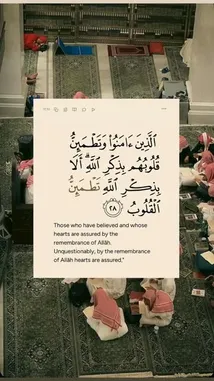 ٱلَّذِينَ ءَامَنُوا۟ وَتَطْمَئِنُّ
قُلُوبُهُم بِذِكْرِ ٱللَّهِ ۗ أَلَا
بِذِكْرِ ٱللَّهِ تَطْمَئِنُّ
ٱلْقُلُوبُ ٢٨
Those who have believed and whose
hearts are assured by the
remembrance of Allāh.
Unquestionably, by the remembrance
of Allāh hearts are assured."